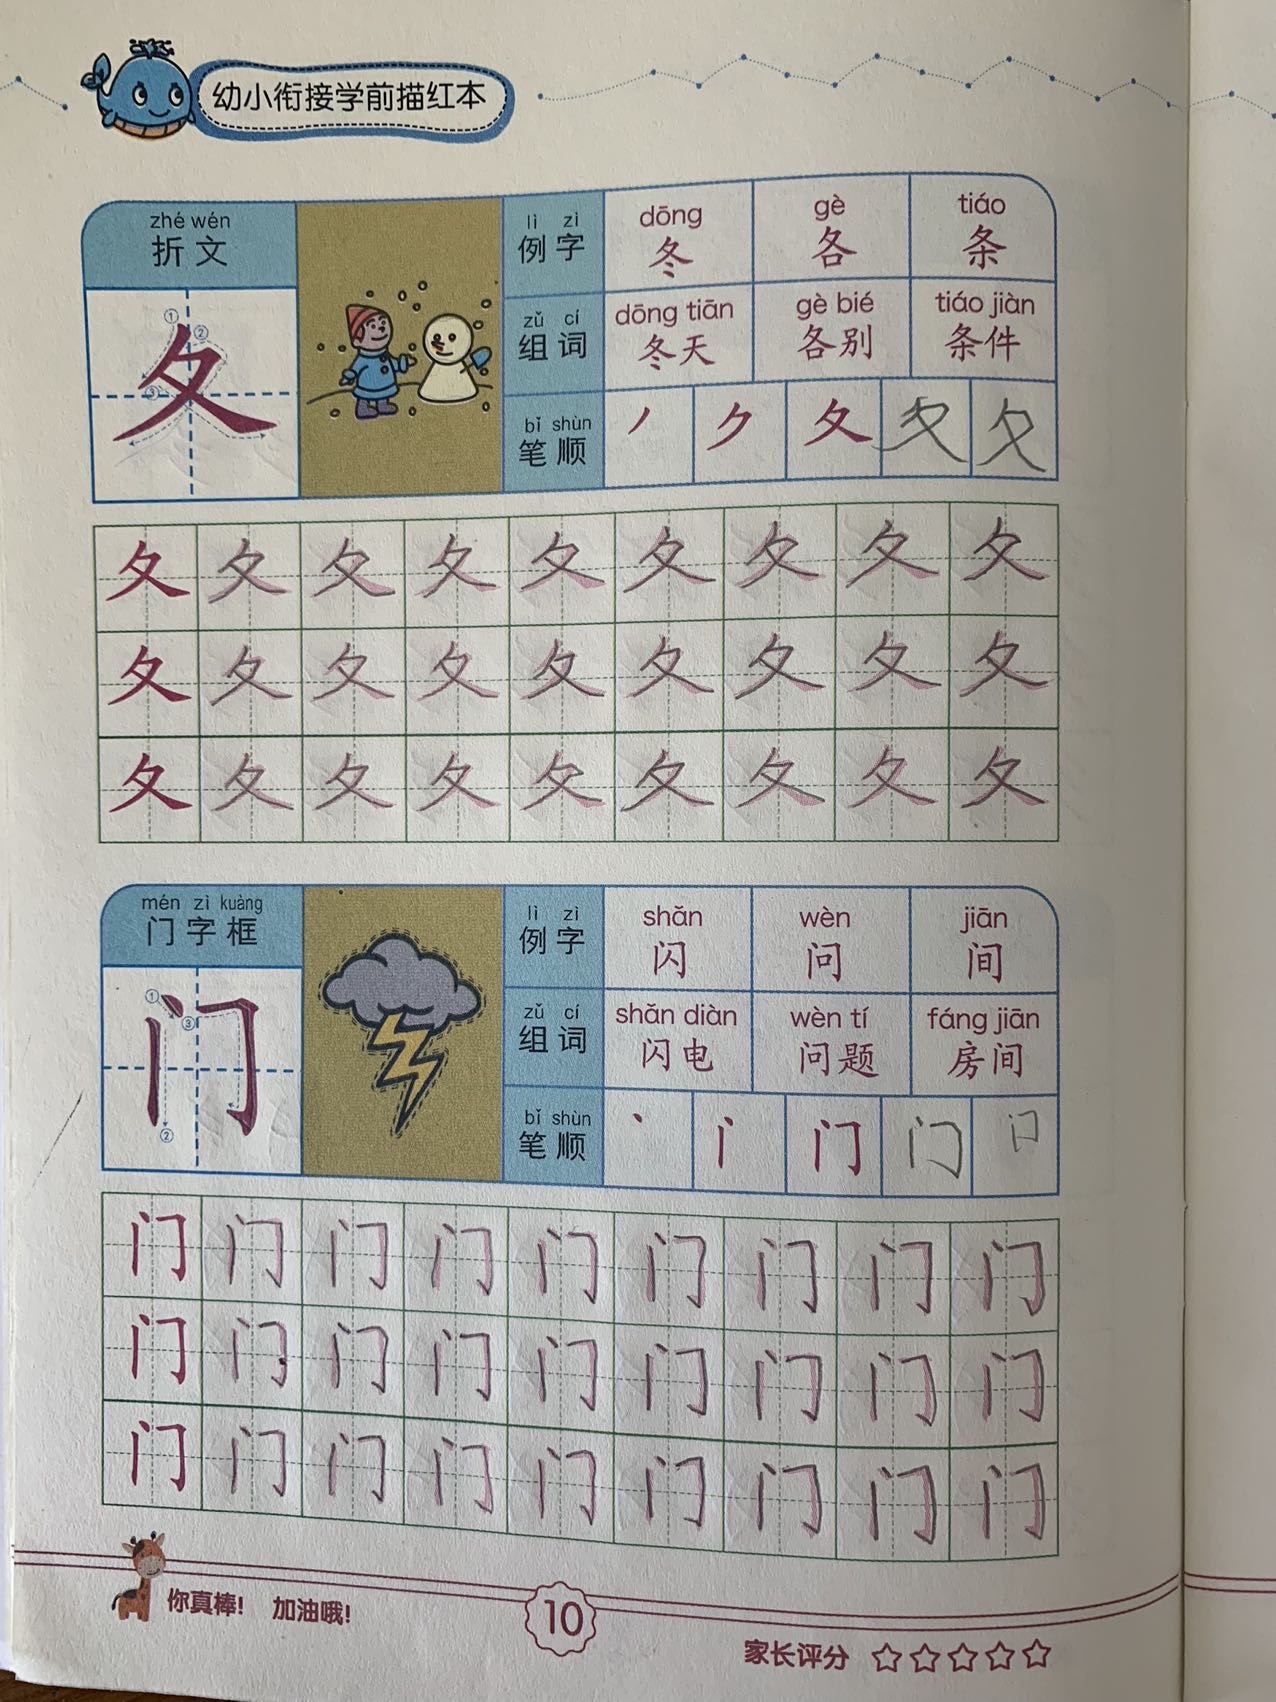 幼小衔接学前描红本
zhé wén
折文
① ② ③
夂
lì zì
例字
dōng gè tiáo
冬 各 条
zǔ cí
组词
dōng tiān gè bié tiáo jiàn
冬天 各别 条件
bǐ shùn
笔顺
丿 ク 夂 夂 夂
夂 夂 夂 夂 夂 夂 夂 夂 夂
夂 夂 夂 夂 夂 夂 夂 夂 夂
夂 夂 夂 夂 夂 夂 夂 夂 夂
mén zì kuàng
门字框
① ③ ②
门
lì zì
例字
shǎn wèn jiān
闪 问 间
zǔ cí
组词
shǎn diàn wèn tí fáng jiān
闪电 问题 房间
bǐ shùn
笔顺
丶 门 门
门 门 门 门 门 门 门 门 门
门 门 门 门 门 门 门 门 门
门 门 门 门 门 门 门 门 门
你真棒! 加油哦!
10
家长评分 ☆☆☆☆☆